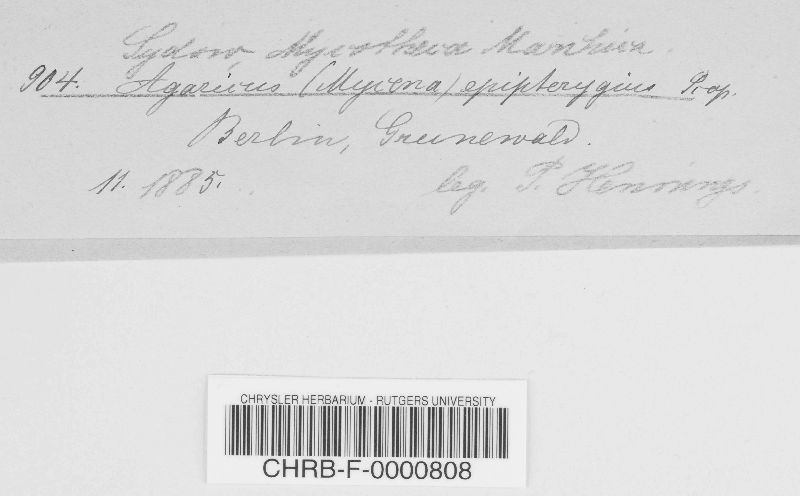 Sydow, Mycotheca Marchica.
904. Agaricus (Mycena) epipterygius Scop.
Berlin, Grunewald.
11. 1885. leg. P. Hennings.
CHRYSLER HERBARIUM - RUTGERS UNIVERSITY
CHRB-F-0000808